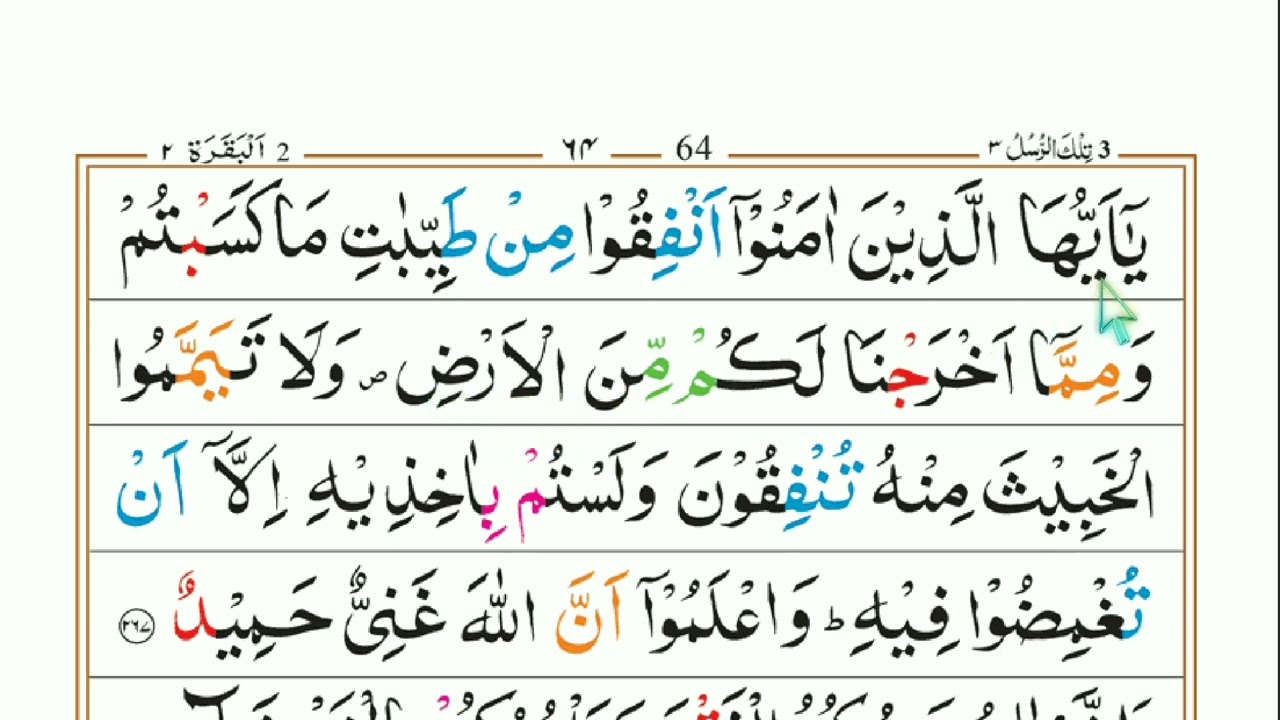 3 تِلْكَ الرُّسُلُ ٣ 64 ٦٤ 2 اَلْبَقَرَة ٢
يٰۤاَيُّهَا الَّذِيْنَ اٰمَنُوْۤا اَنْفِقُوْا مِنْ طَيِّبٰتِ مَا كَسَبْتُمْ
وَمِمَّاۤ اَخْرَجْنَا لَكُمْ مِّنَ الْاَرْضِ ص وَلَا تَيَمَّمُوا
الْخَبِيْثَ مِنْهُ تُنْفِقُوْنَ وَلَسْتُمْ بِاٰخِذِيْهِ اِلَّاۤ اَنْ
تُغْمِضُوْا فِيْهِ ط وَاعْلَمُوْۤا اَنَّ اللّٰهَ غَنِيٌّ حَمِيْدٌ ٢٦٧